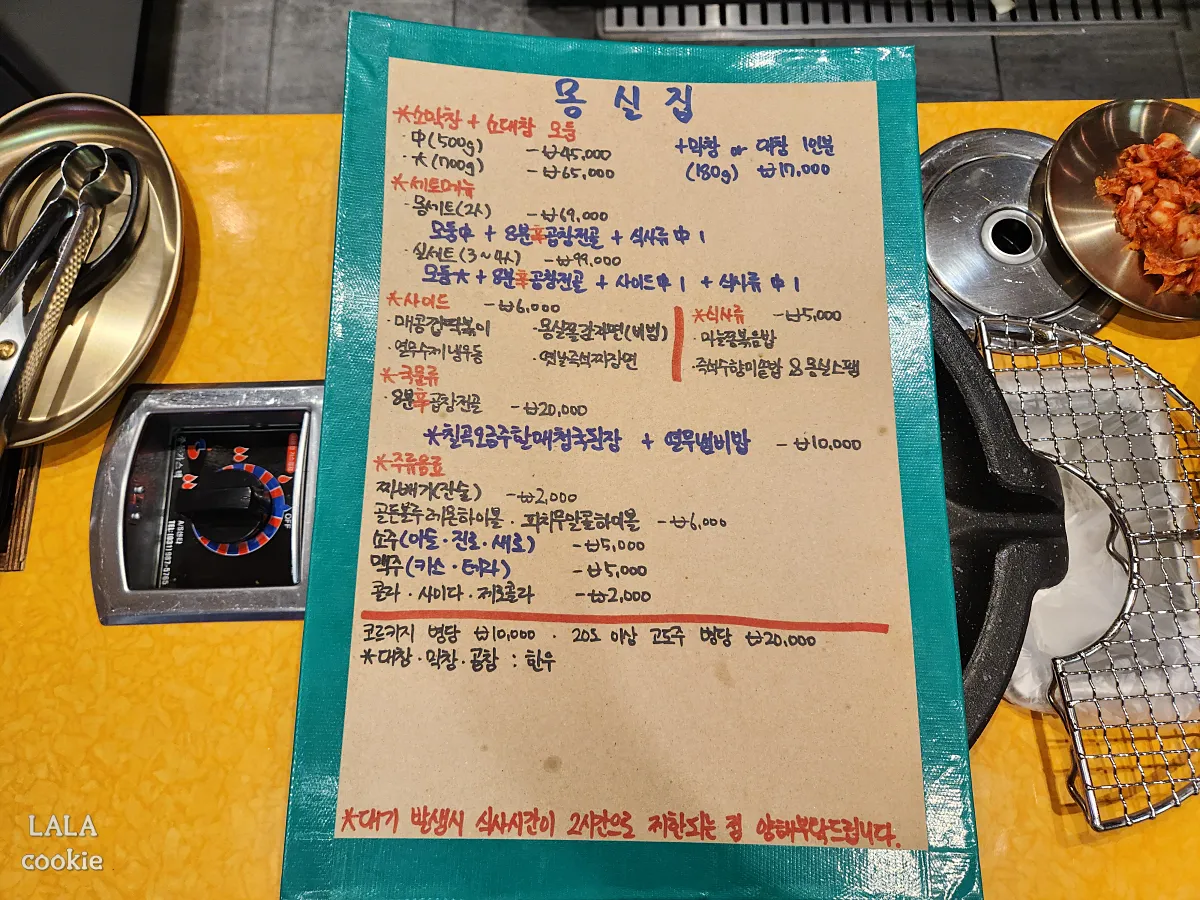 몽실집
*소막창 + 소대창 모둠
·中(500g) -₩45,000
+막창 or 대창 1인분
·大(700g) -₩65,000
(180g) ₩17,000
*세트메뉴
·몽세트(2人) -₩69,000
모둠中 + 8분辛곱창전골 + 식사류 中 1
·실세트(3~4人) -₩99,000
모둠大 + 8분辛곱창전골 + 사이드中 1 + 식사류 中 1
*사이드 -₩6,000
·매콩겁떡볶이 ·몽실쫄갈자면(비빔)
·열무수제냉우동 ·옛날즉석짜장면
*식사류 -₩5,000
·마늘쫑볶음밥
·즉석수향미쌀밥 & 몽실스팸
*국물류
·8분辛곱창전골 -₩20,000
*칠곡오금주할매청국된장 + 열무비빔밥 -₩10,000
*주류음료
찌배기(잔술) -₩2,000
골든블루레몬하이볼 · 피치우알콜하이볼 -₩6,000
소주(이슬·진로·새로) -₩5,000
맥주(카스·테라) -₩5,000
콜라·사이다·제로콜라 -₩2,000
코르카지 병당 ₩10,000 · 20도 이상 고도주 병당 ₩20,000
*대창·막창·곱창 : 한우
*대기 발생시 식사시간이 2시간으로 제한되는 점 양해부탁드립니다.
OFF
LALA
cookie